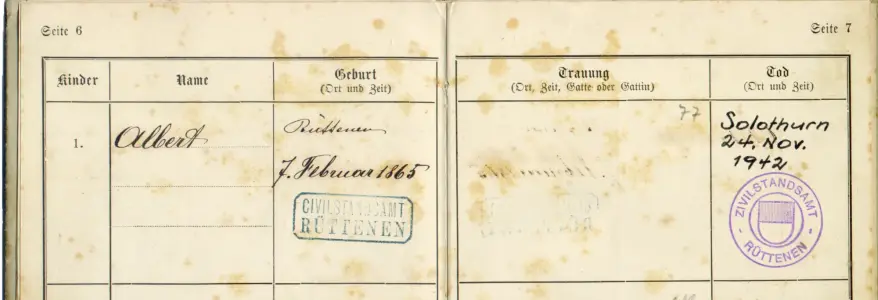 Seite 6
Seite 7
Kinder
Name
Geburt
(Ort und Zeit)
Trauung
(Ort, Zeit, Gatte oder Gattin)
Tod
(Ort und Zeit)
1.
Albert
Rüttenen
7. Februar 1865
CIVILSTANDSAMT
RÜTTENEN
77
Solothurn
24. Nov.
1942
ZIVILSTANDSAMT
RÜTTENEN